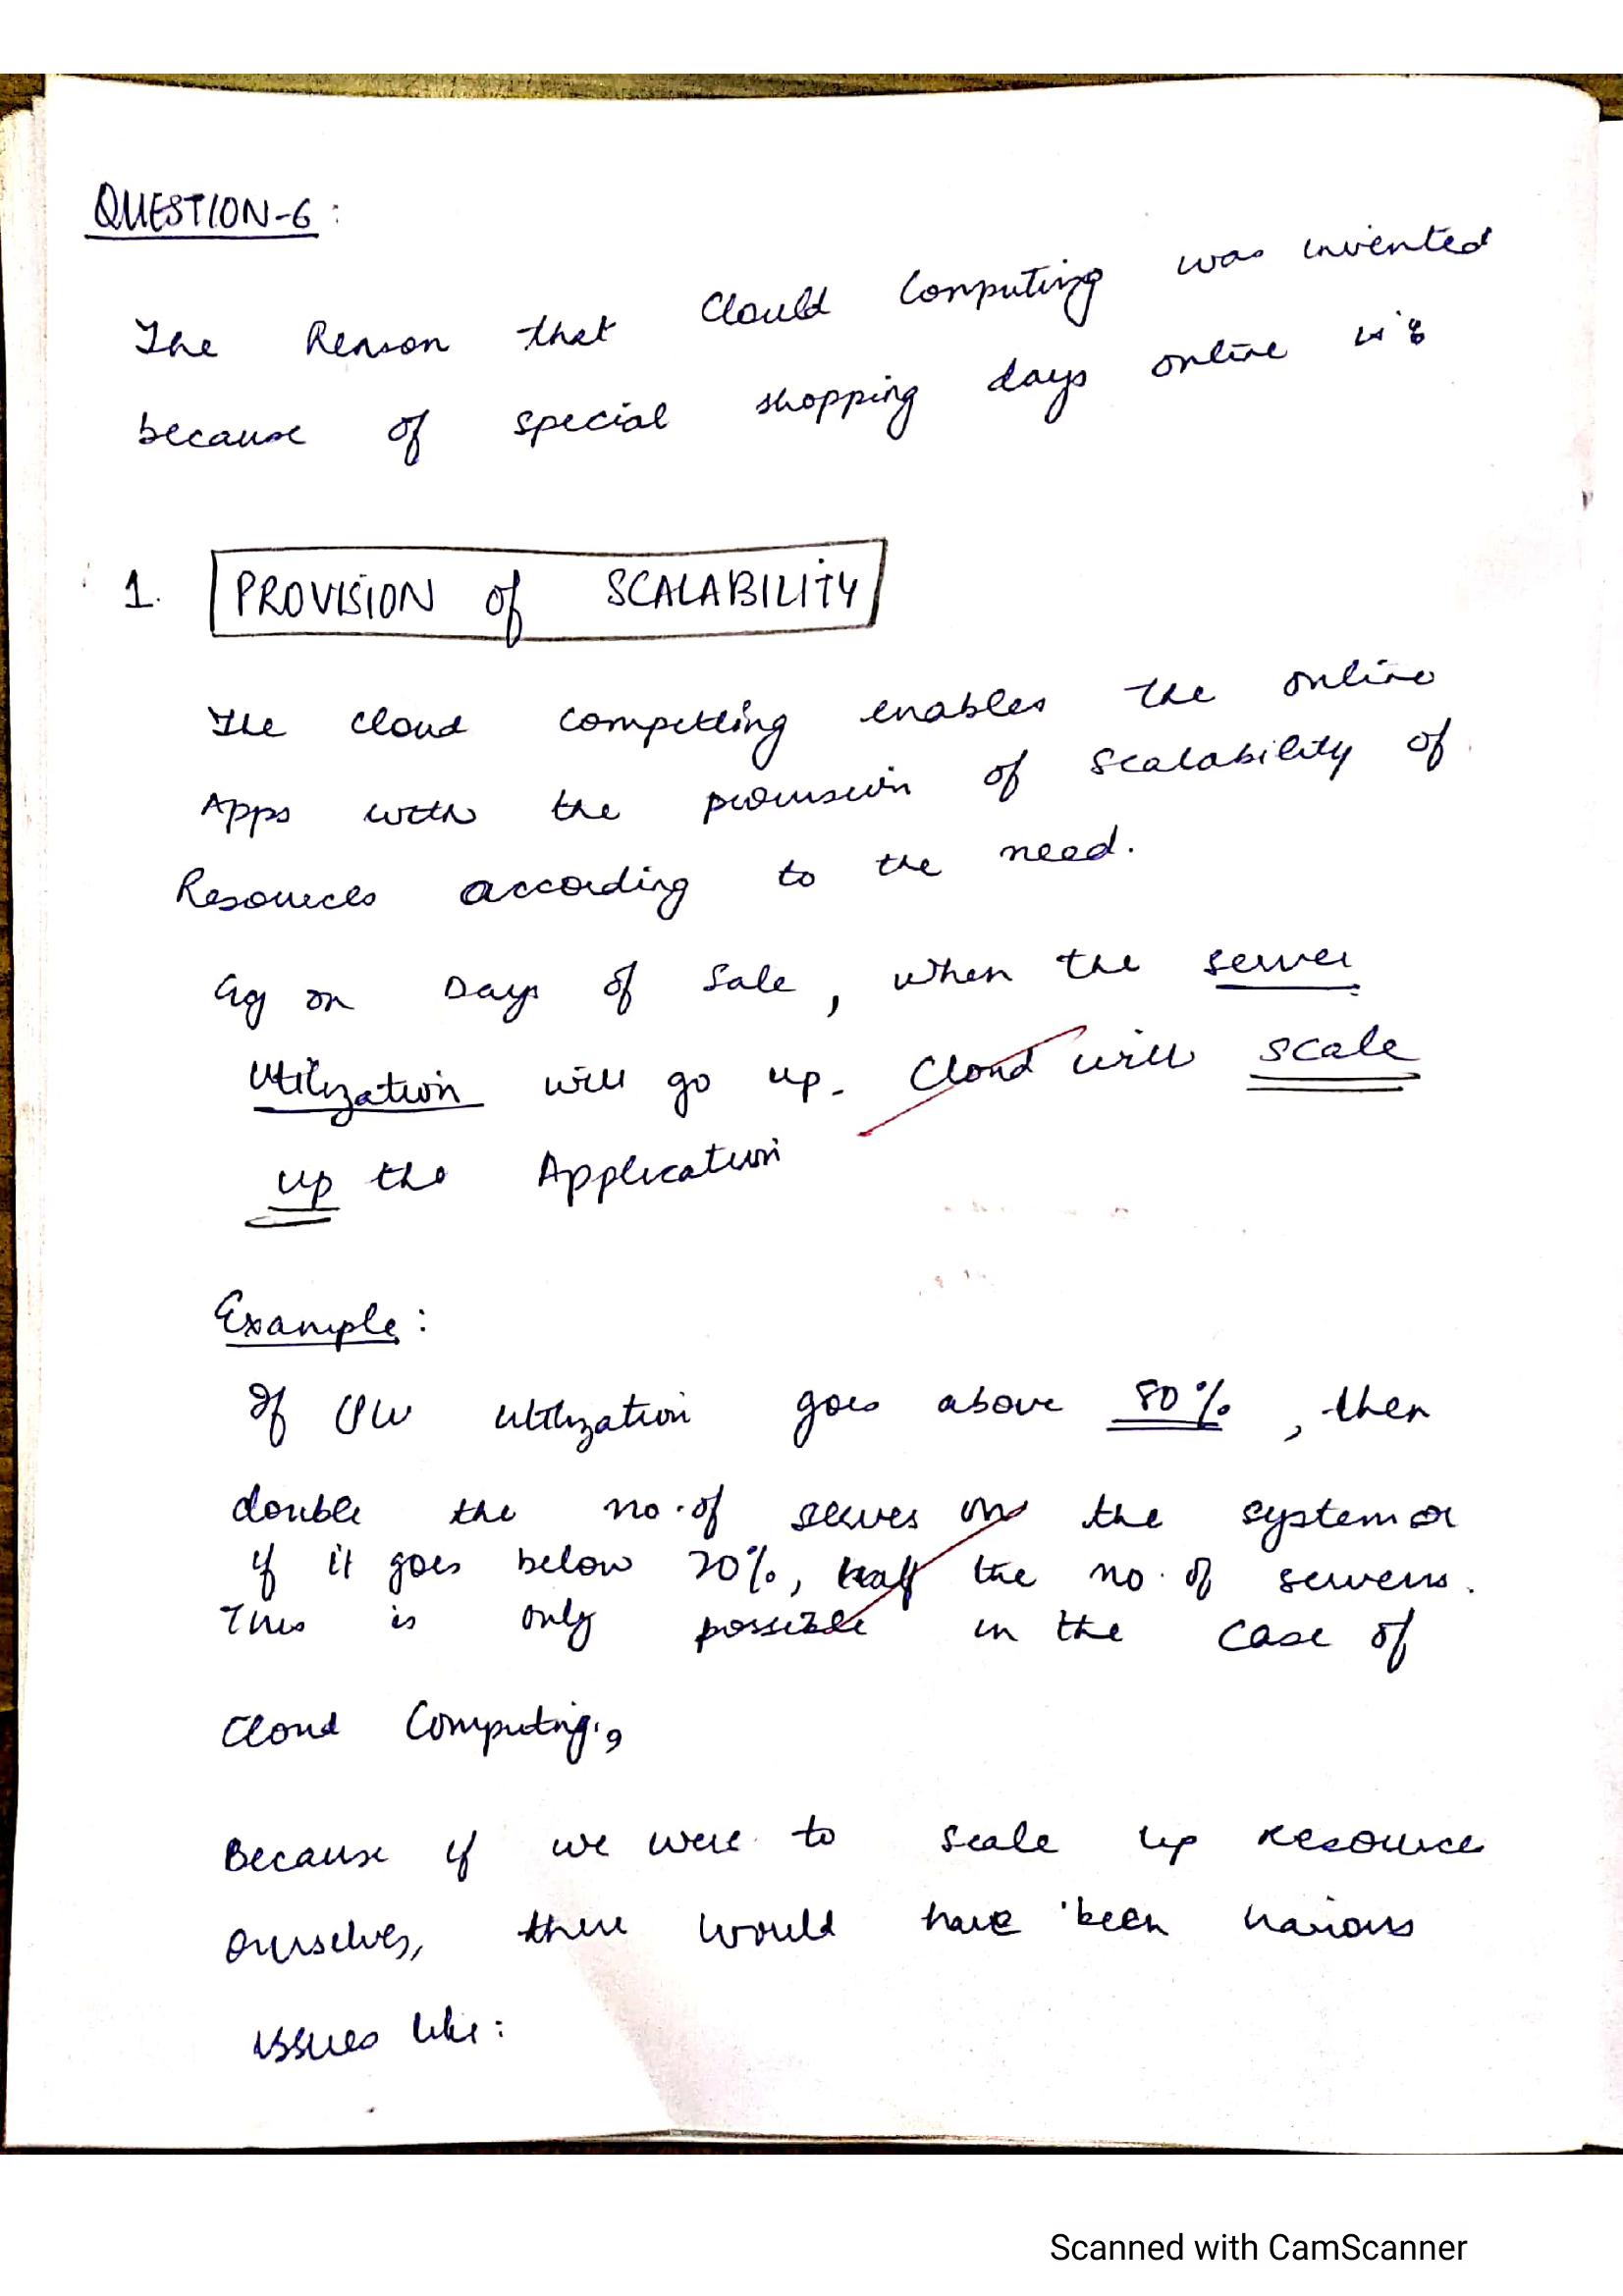 QUESTION-6:
The Reason that Clould Computing was invented
because of special shopping days online is
1. PROVISION of SCALABILITY
The cloud computing enables the online
Apps with the provision of scalability of
Resources according to the need.
Eg on Days of Sale, when the server
Utilization will go up. Cloud will scale
up the Application
Example:
If CPU utilization goes above 80%, then
double the no. of serves on the system or
if it goes below 20%, half the no. of servers.
This is only possible in the case of
Cloud Computing.,
Because if we were to scale up resource
ourselves, there would have been various
issues like:
Scanned with CamScanner